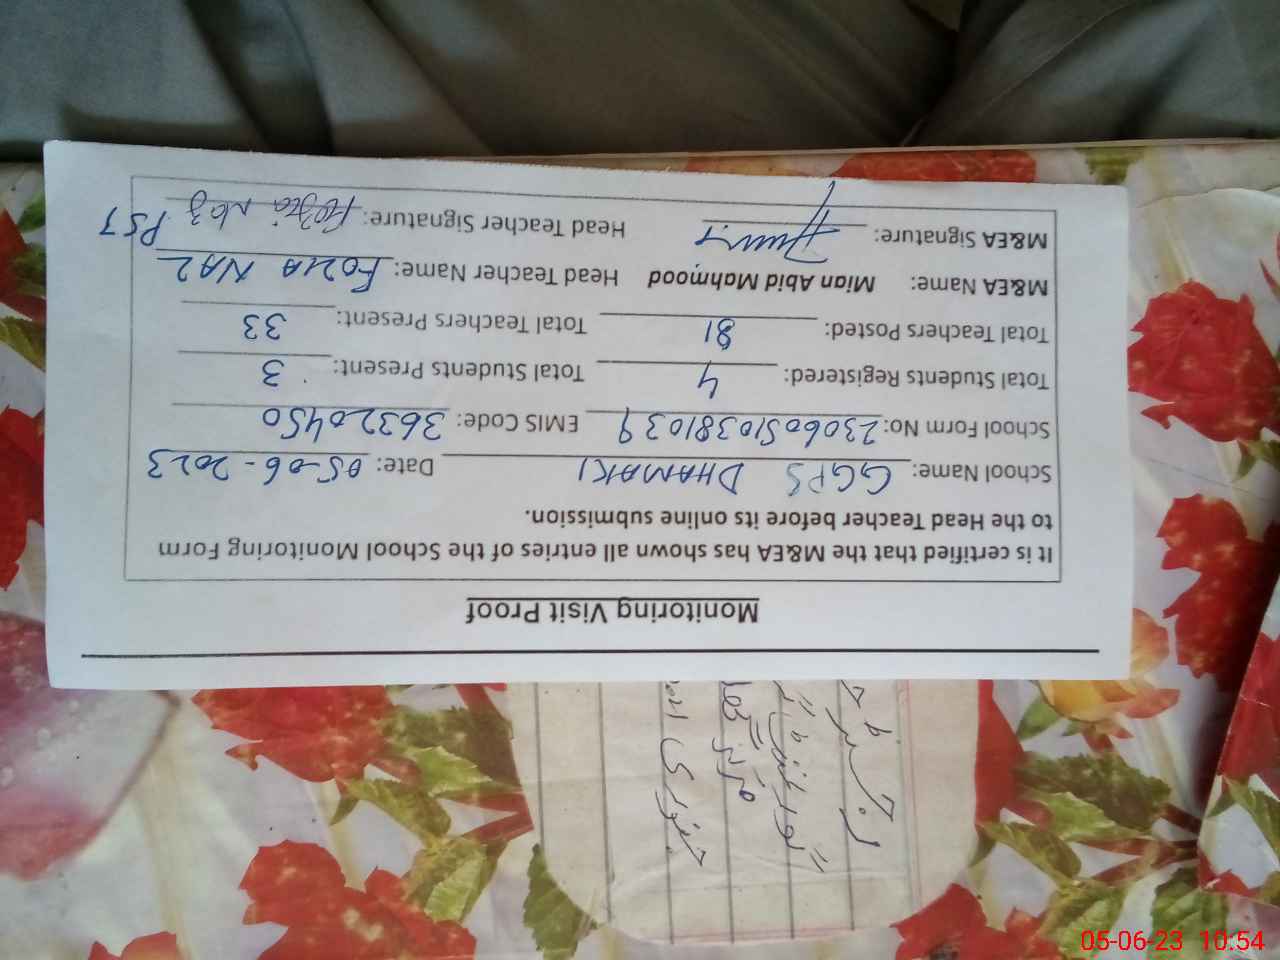 Monitoring Visit Proof
It is certified that the M&EA has shown all entries of the School Monitoring Form
to the Head Teacher before its online submission.
School Name: GGPS DHAMAKI Date: 05-06-2023
School Form No: 23060510381039 EMIS Code: 36320450
Total Students Registered: 4 Total Students Present: 3
Total Teachers Posted: 81 Total Teachers Present: 33
M&EA Name: Mian Abid Mahmood Head Teacher Name: FOZIA NAZ
M&EA Signature: Head Teacher Signature: Fozia Naz PST
05-06-23 10:54